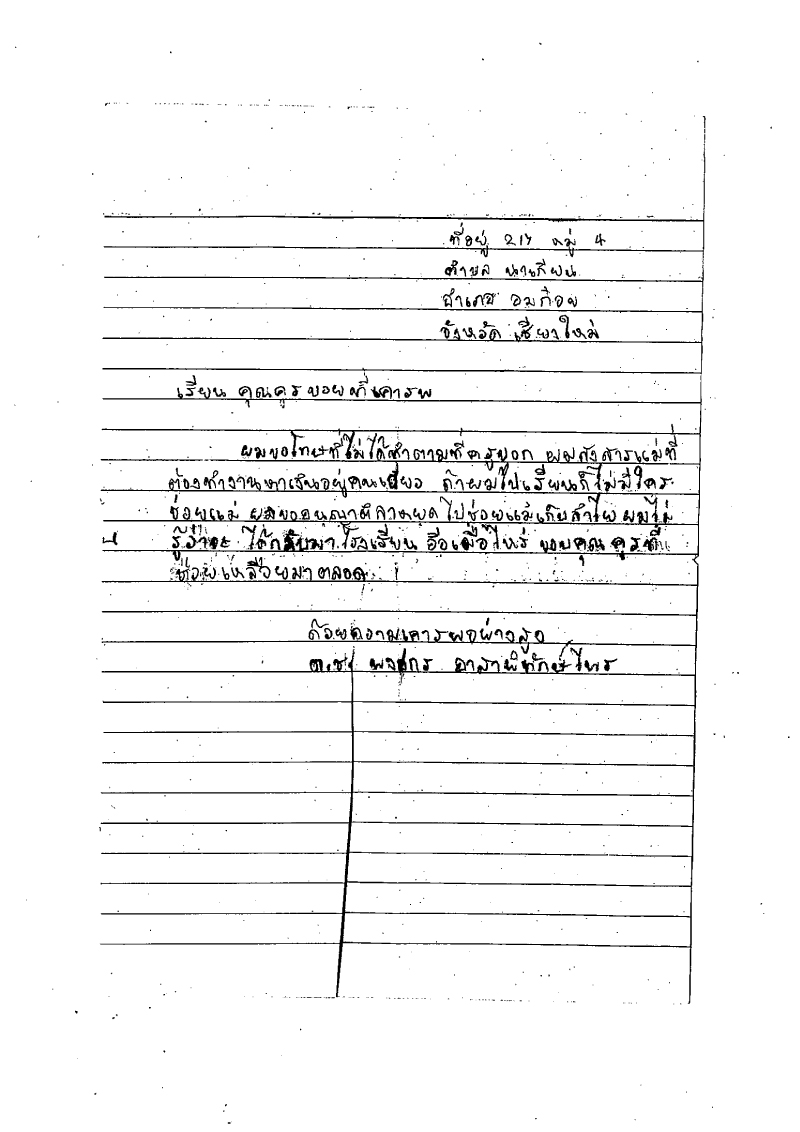 ที่อยู่ 217 หมู่ 4
ตำบล นาเกียน
อำเภอ อมก๋อย
จังหวัด เชียงใหม่
เรียน คุณครูบอยที่เคารพ
ผมขอโทษที่ไม่ได้ทำตามที่ครูบอก ผมสงสารแม่ที่
ต้องทำงานหาเงินอยู่คนเดียว ถ้าผมไปเรียนก็ไม่มีใคร
ช่อยแม่ ผมขออนุณาติลาหยุดไปช่อยแม่เก็บลำไย ผมไม่
รู้ว่าจะ ได้กลับมาโรงเรียน อีกเมื่อไหร่ ขอบคุณครูที่
ช่อยเหลือยมาตลอด
ด้วยความเคารพอย่างสูง
ด.ช พงศกร อาสาพิทักษ์ไพร